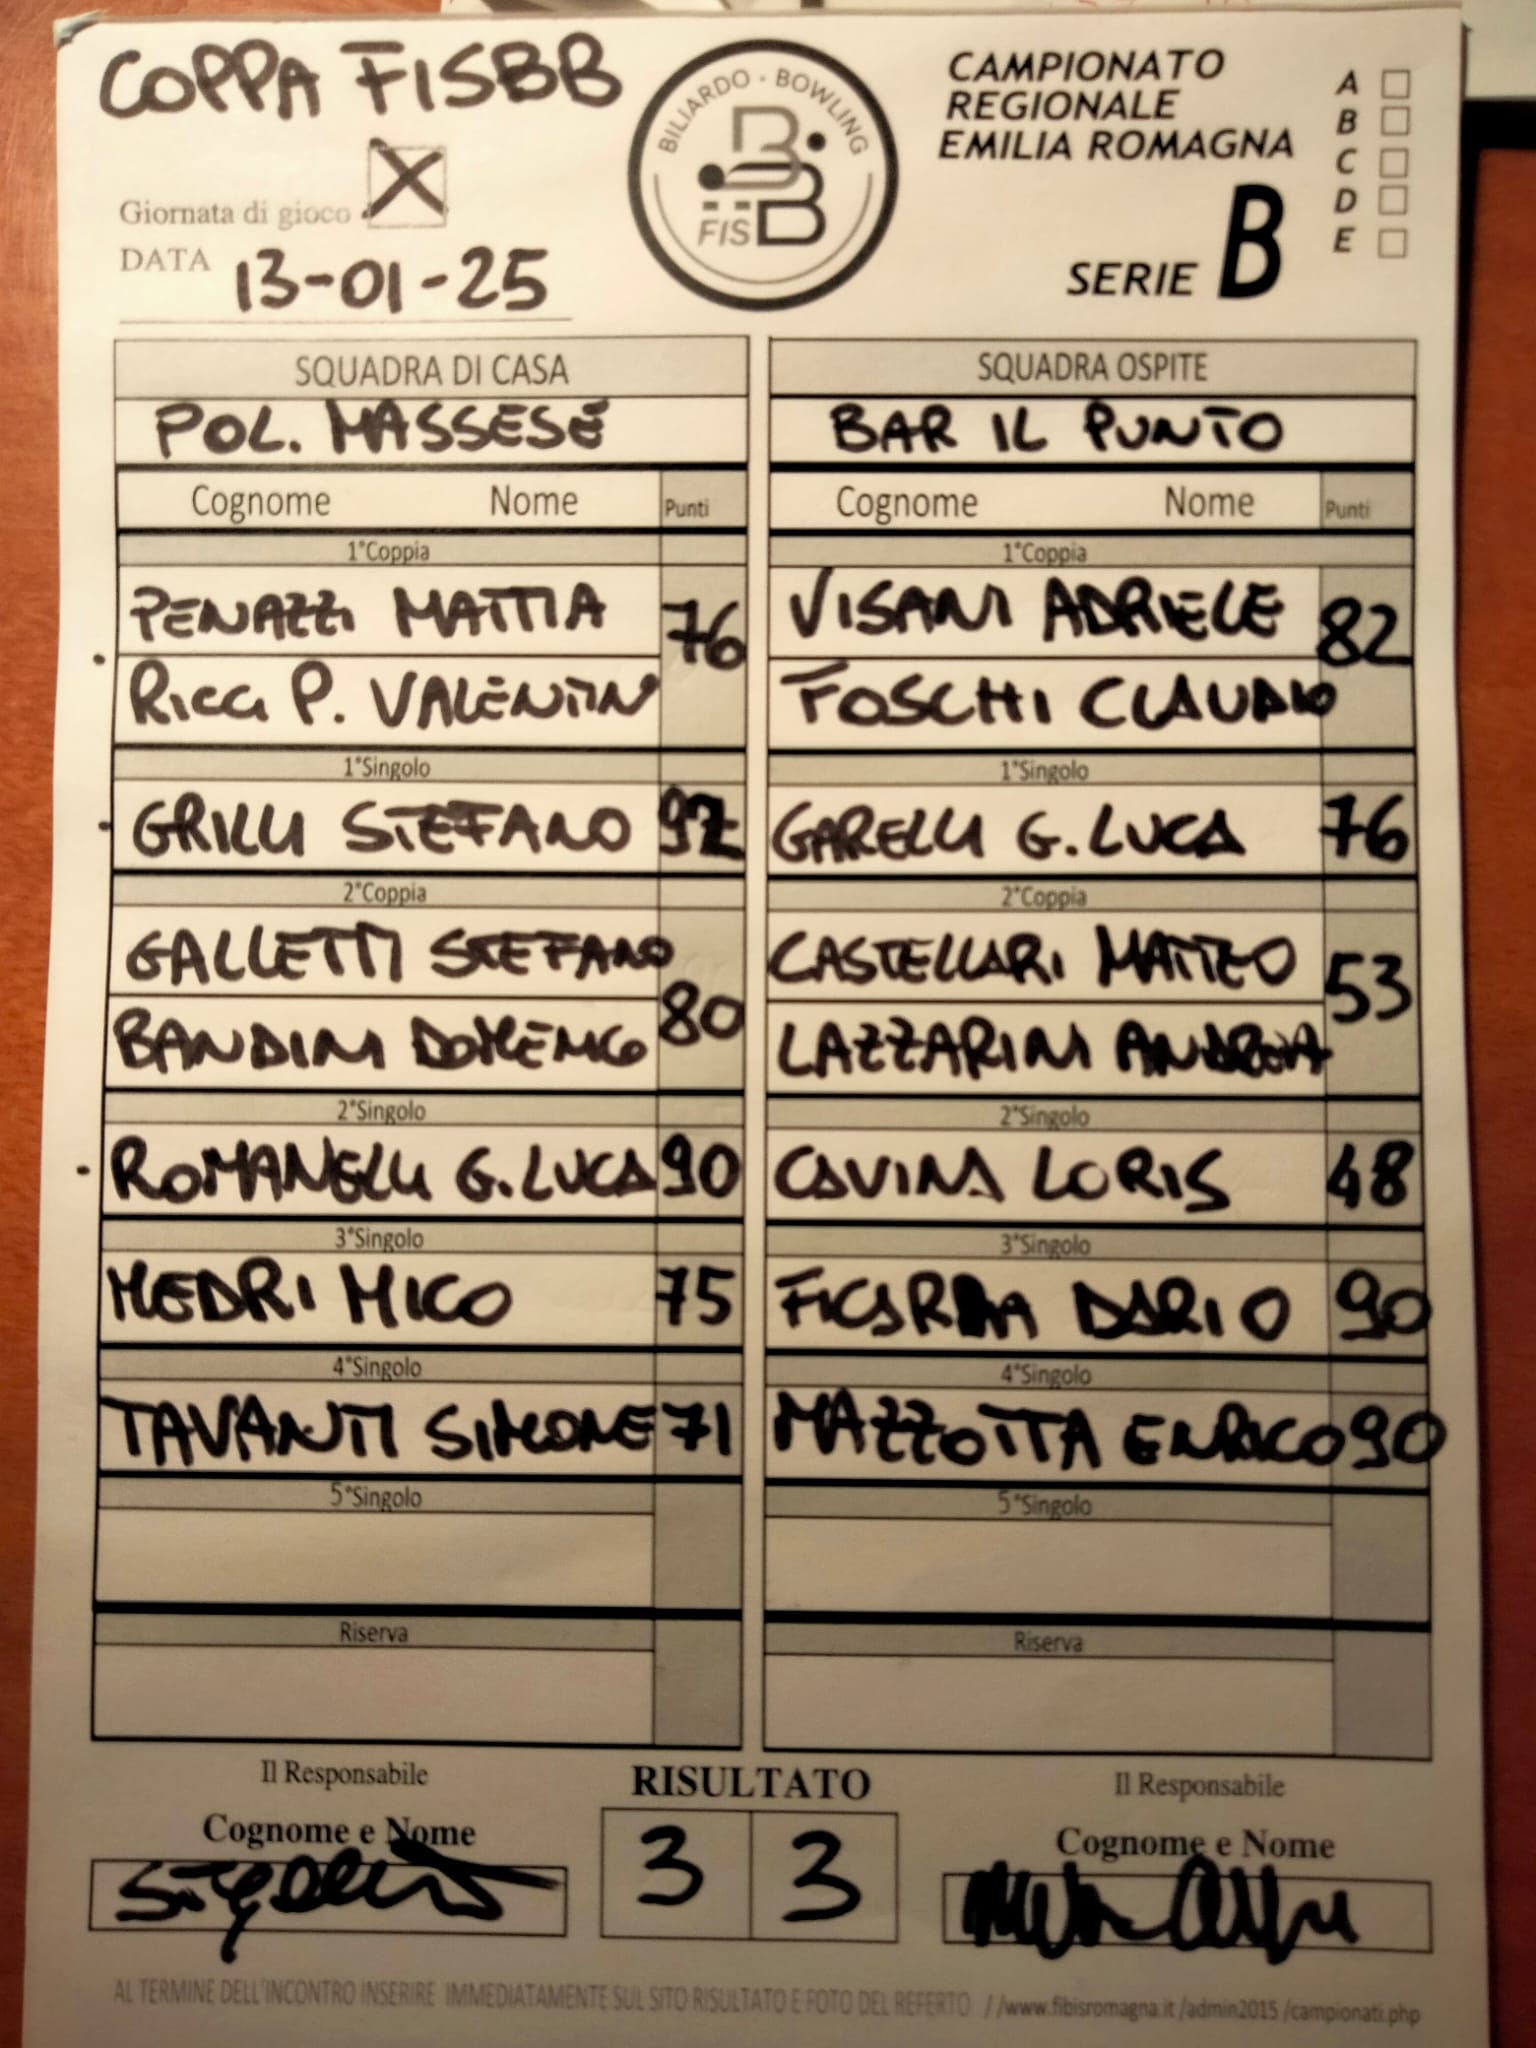 COPPA FISBB
Giornata di gioco X
DATA 13-01-25
BILIARDO · BOWLING
FISBB
CAMPIONATO
REGIONALE
EMILIA ROMAGNA
SERIE B
A
B
C
D
E
SQUADRA DI CASA
POL. MASSESE
Cognome Nome Punti
1°Coppia
PENAZZI MATTIA 76
RICCI P. VALENTIN
1°Singolo
GRILLI STEFANO 92
2°Coppia
GALLETTI STEFANO
BANDINI DOMENICO 80
2°Singolo
ROMANELLI G.LUCA 90
3°Singolo
MEDRI MICO 75
4°Singolo
TAVANTI SIMONE 71
5°Singolo
Riserva
SQUADRA OSPITE
BAR IL PUNTO
Cognome Nome Punti
1°Coppia
VISANI ADRIELE 82
FOSCHI CLAUDIO
1°Singolo
GARELLI G.LUCA 76
2°Coppia
CASTELLARI MATTEO 53
LAZZARINI ANDREA
2°Singolo
CAVINA LORIS 48
3°Singolo
FICARRA DARIO 90
4°Singolo
MAZZOTTA ENRICO 90
5°Singolo
Riserva
Il Responsabile
Cognome e Nome
RISULTATO
3 3
Il Responsabile
Cognome e Nome
AL TERMINE DELL'INCONTRO INSERIRE IMMEDIATAMENTE SUL SITO RISULTATO E FOTO DEL REFERTO //www.fibisromagna.it /admin2015 /campionati.php